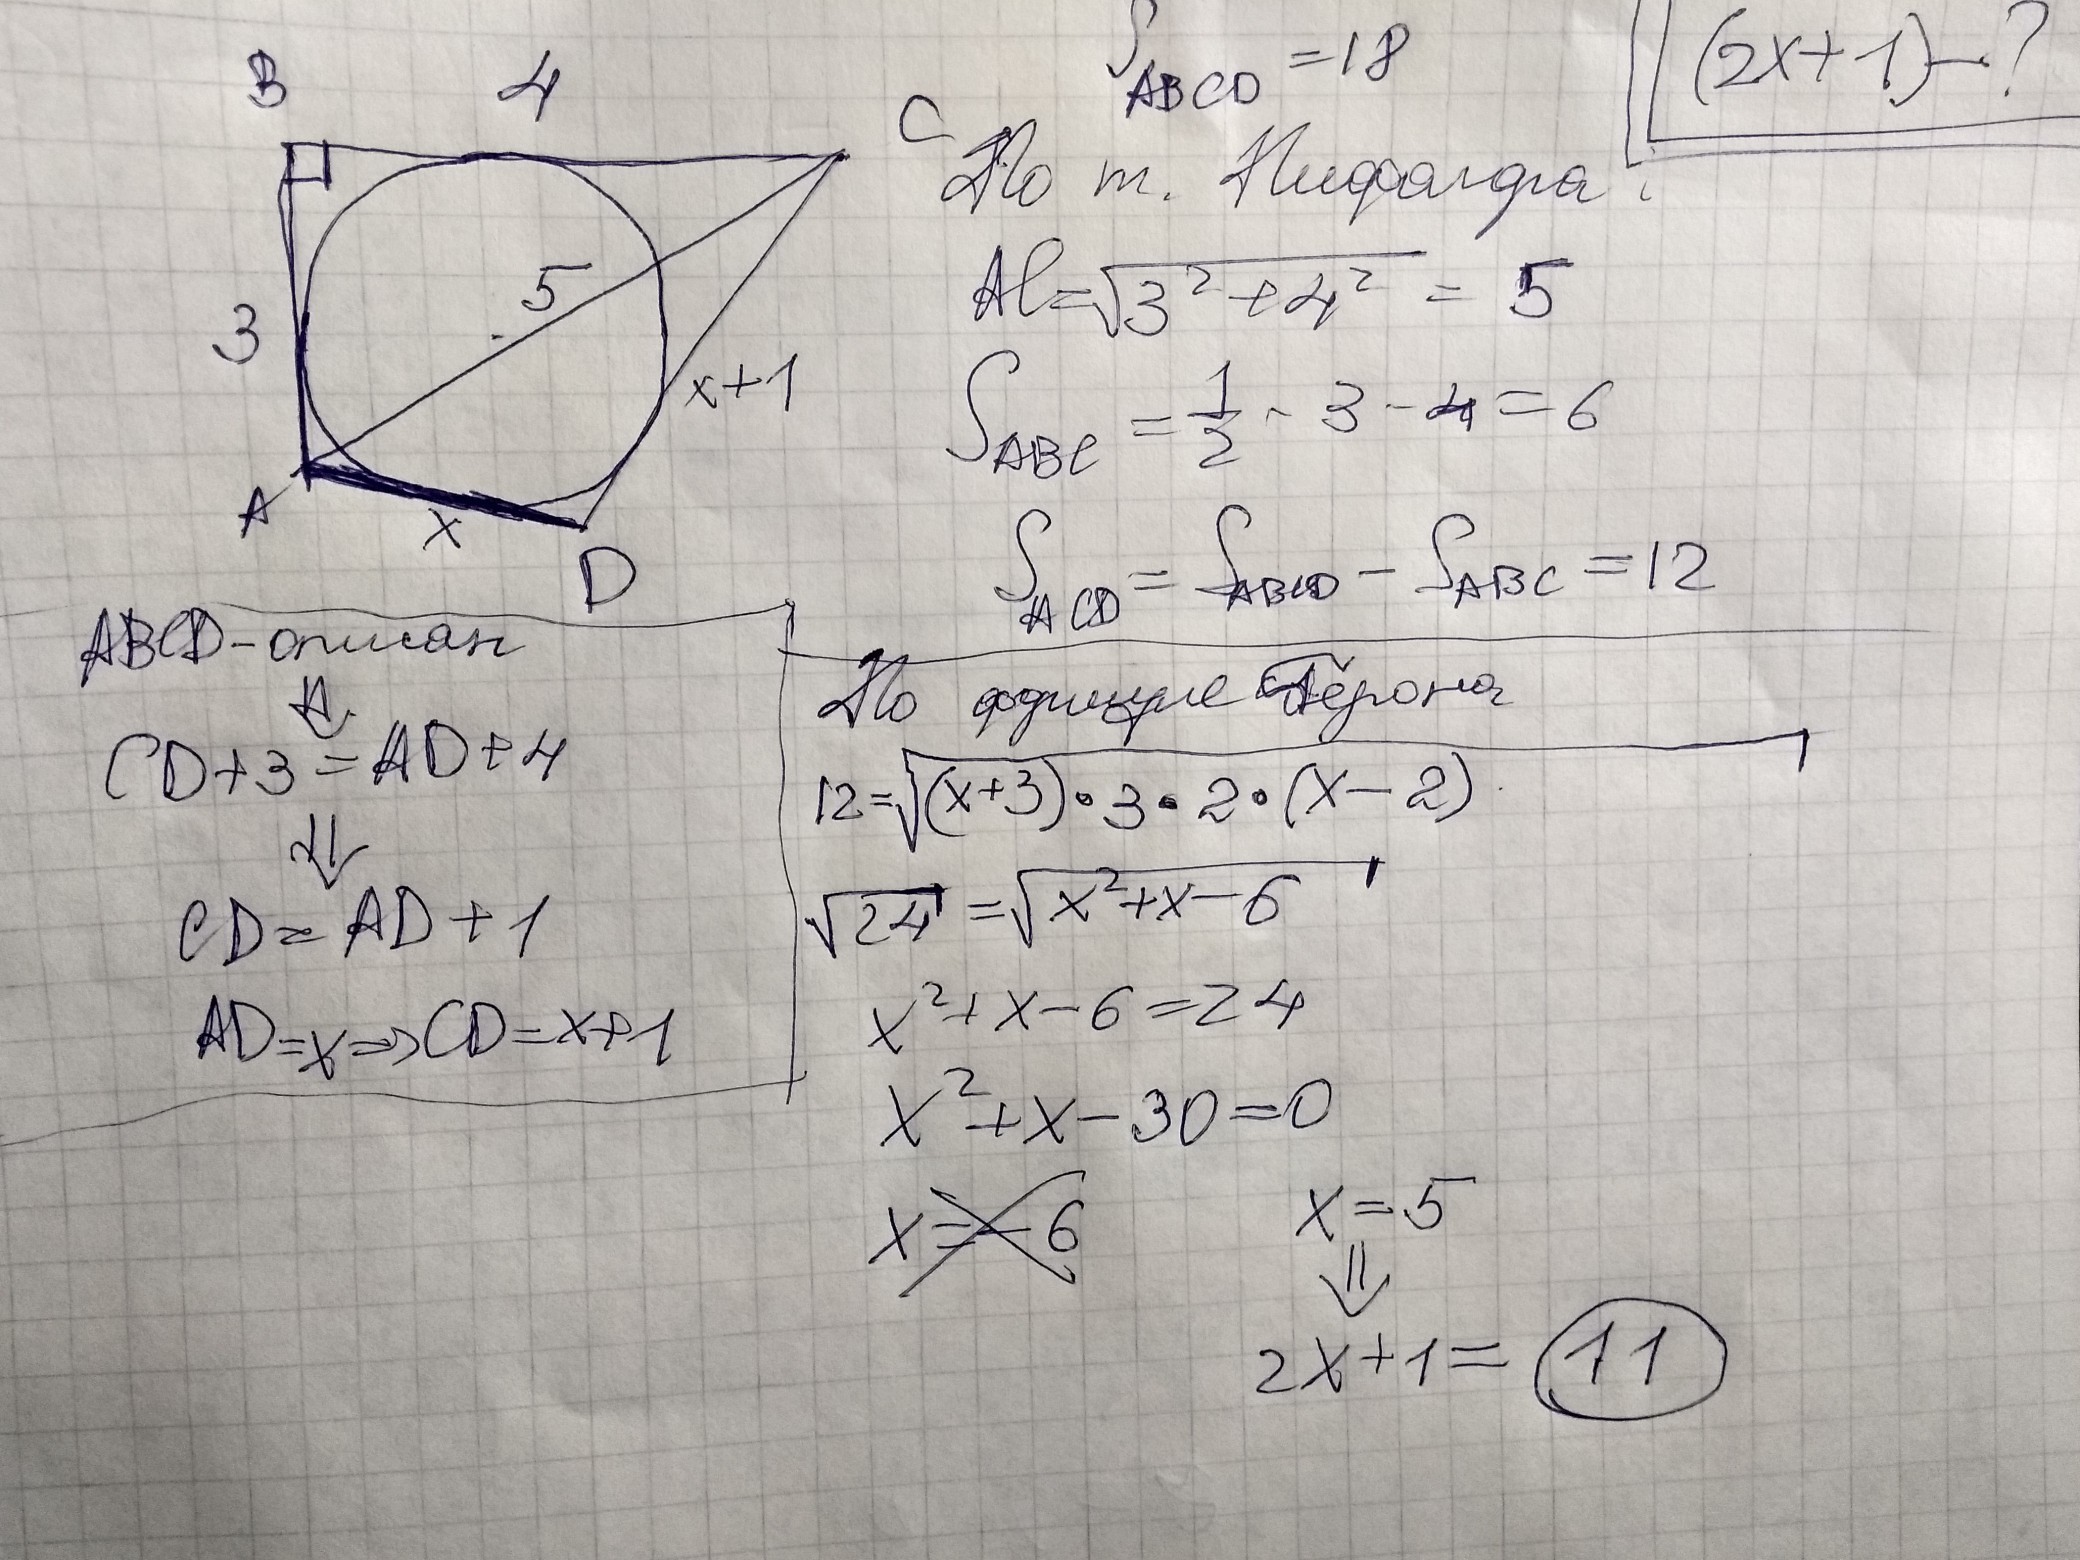 B 4 C
3 5 x+1
A x D
S_ABCD = 18
(2x+1) - ?
По т. Пифагора:
AC = √(3² + 4²) = 5
S_ABC = 1/2 · 3 · 4 = 6
S_ACD = S_ABCD - S_ABC = 12
ABCD - описан
⇓
CD + 3 = AD + 4
⇓
CD = AD + 1
AD = x => CD = x+1
По формуле Герона
12 = √((x+3) · 3 · 2 · (x-2))
√24 = √(x² + x - 6)
x² + x - 6 = 24
x² + x - 30 = 0
x = -6 x = 5
⇓
2x + 1 = 11